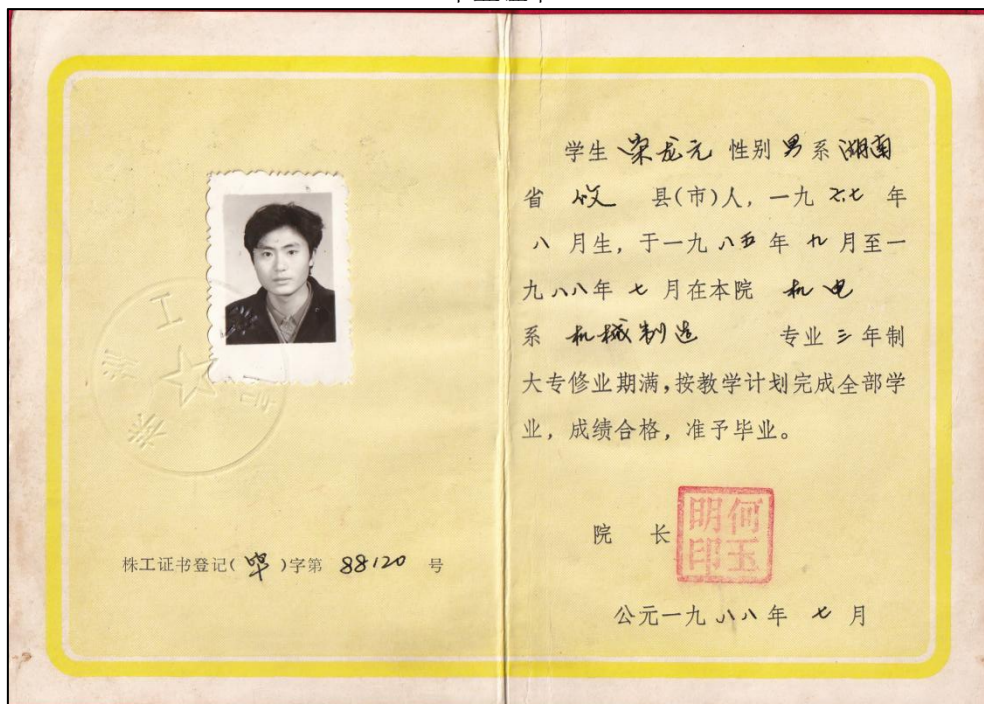 株工证书登记(毕)字第 88120 号
学生 荣龙元 性别 男 系 湖南
省 攸 县(市)人,一九 六七 年
八 月生,于一九 八五 年 九 月至一
九 八八 年 七 月在本院 机电
系 机械制造 专业 三 年制
大专修业期满,按教学计划完成全部学
业,成绩合格,准予毕业。
院 长
何玉
明印
公元一九 八八 年 七 月